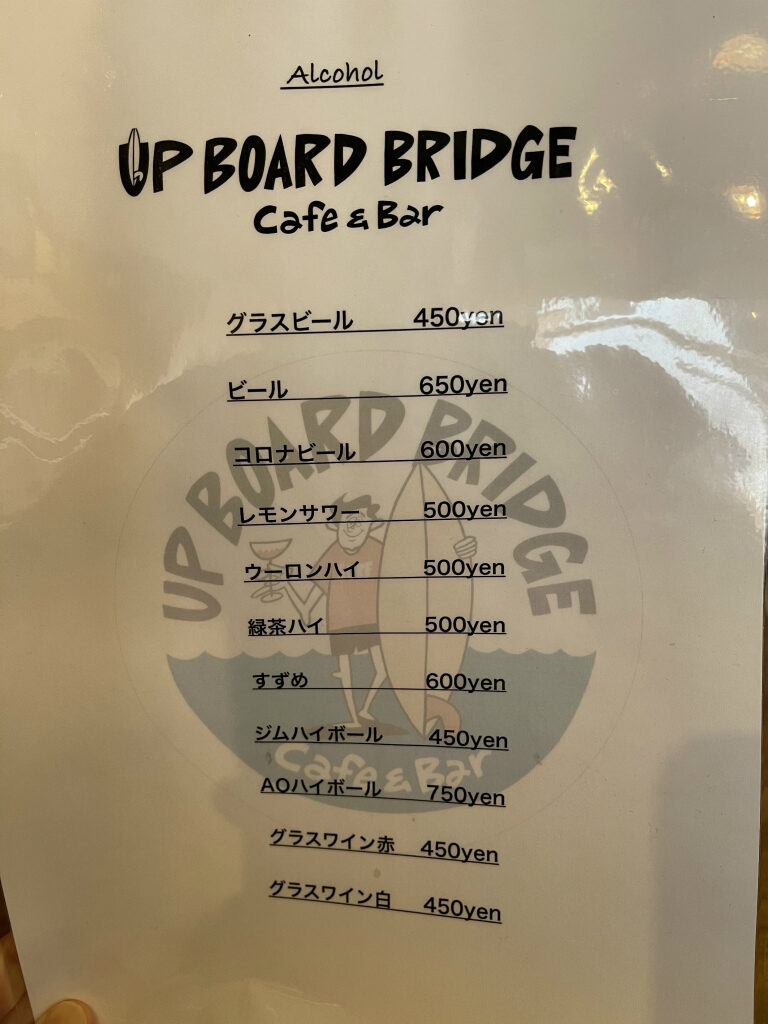 Alcohol
UP BOARD BRIDGE
Cafe & Bar
グラスビール 450yen
ビール 650yen
コロナビール 600yen
レモンサワー 500yen
ウーロンハイ 500yen
緑茶ハイ 500yen
すずめ 600yen
ジムハイボール 450yen
AOハイボール 750yen
グラスワイン赤 450yen
グラスワイン白 450yen
UP BOARD BRIDGE
Cafe & Bar